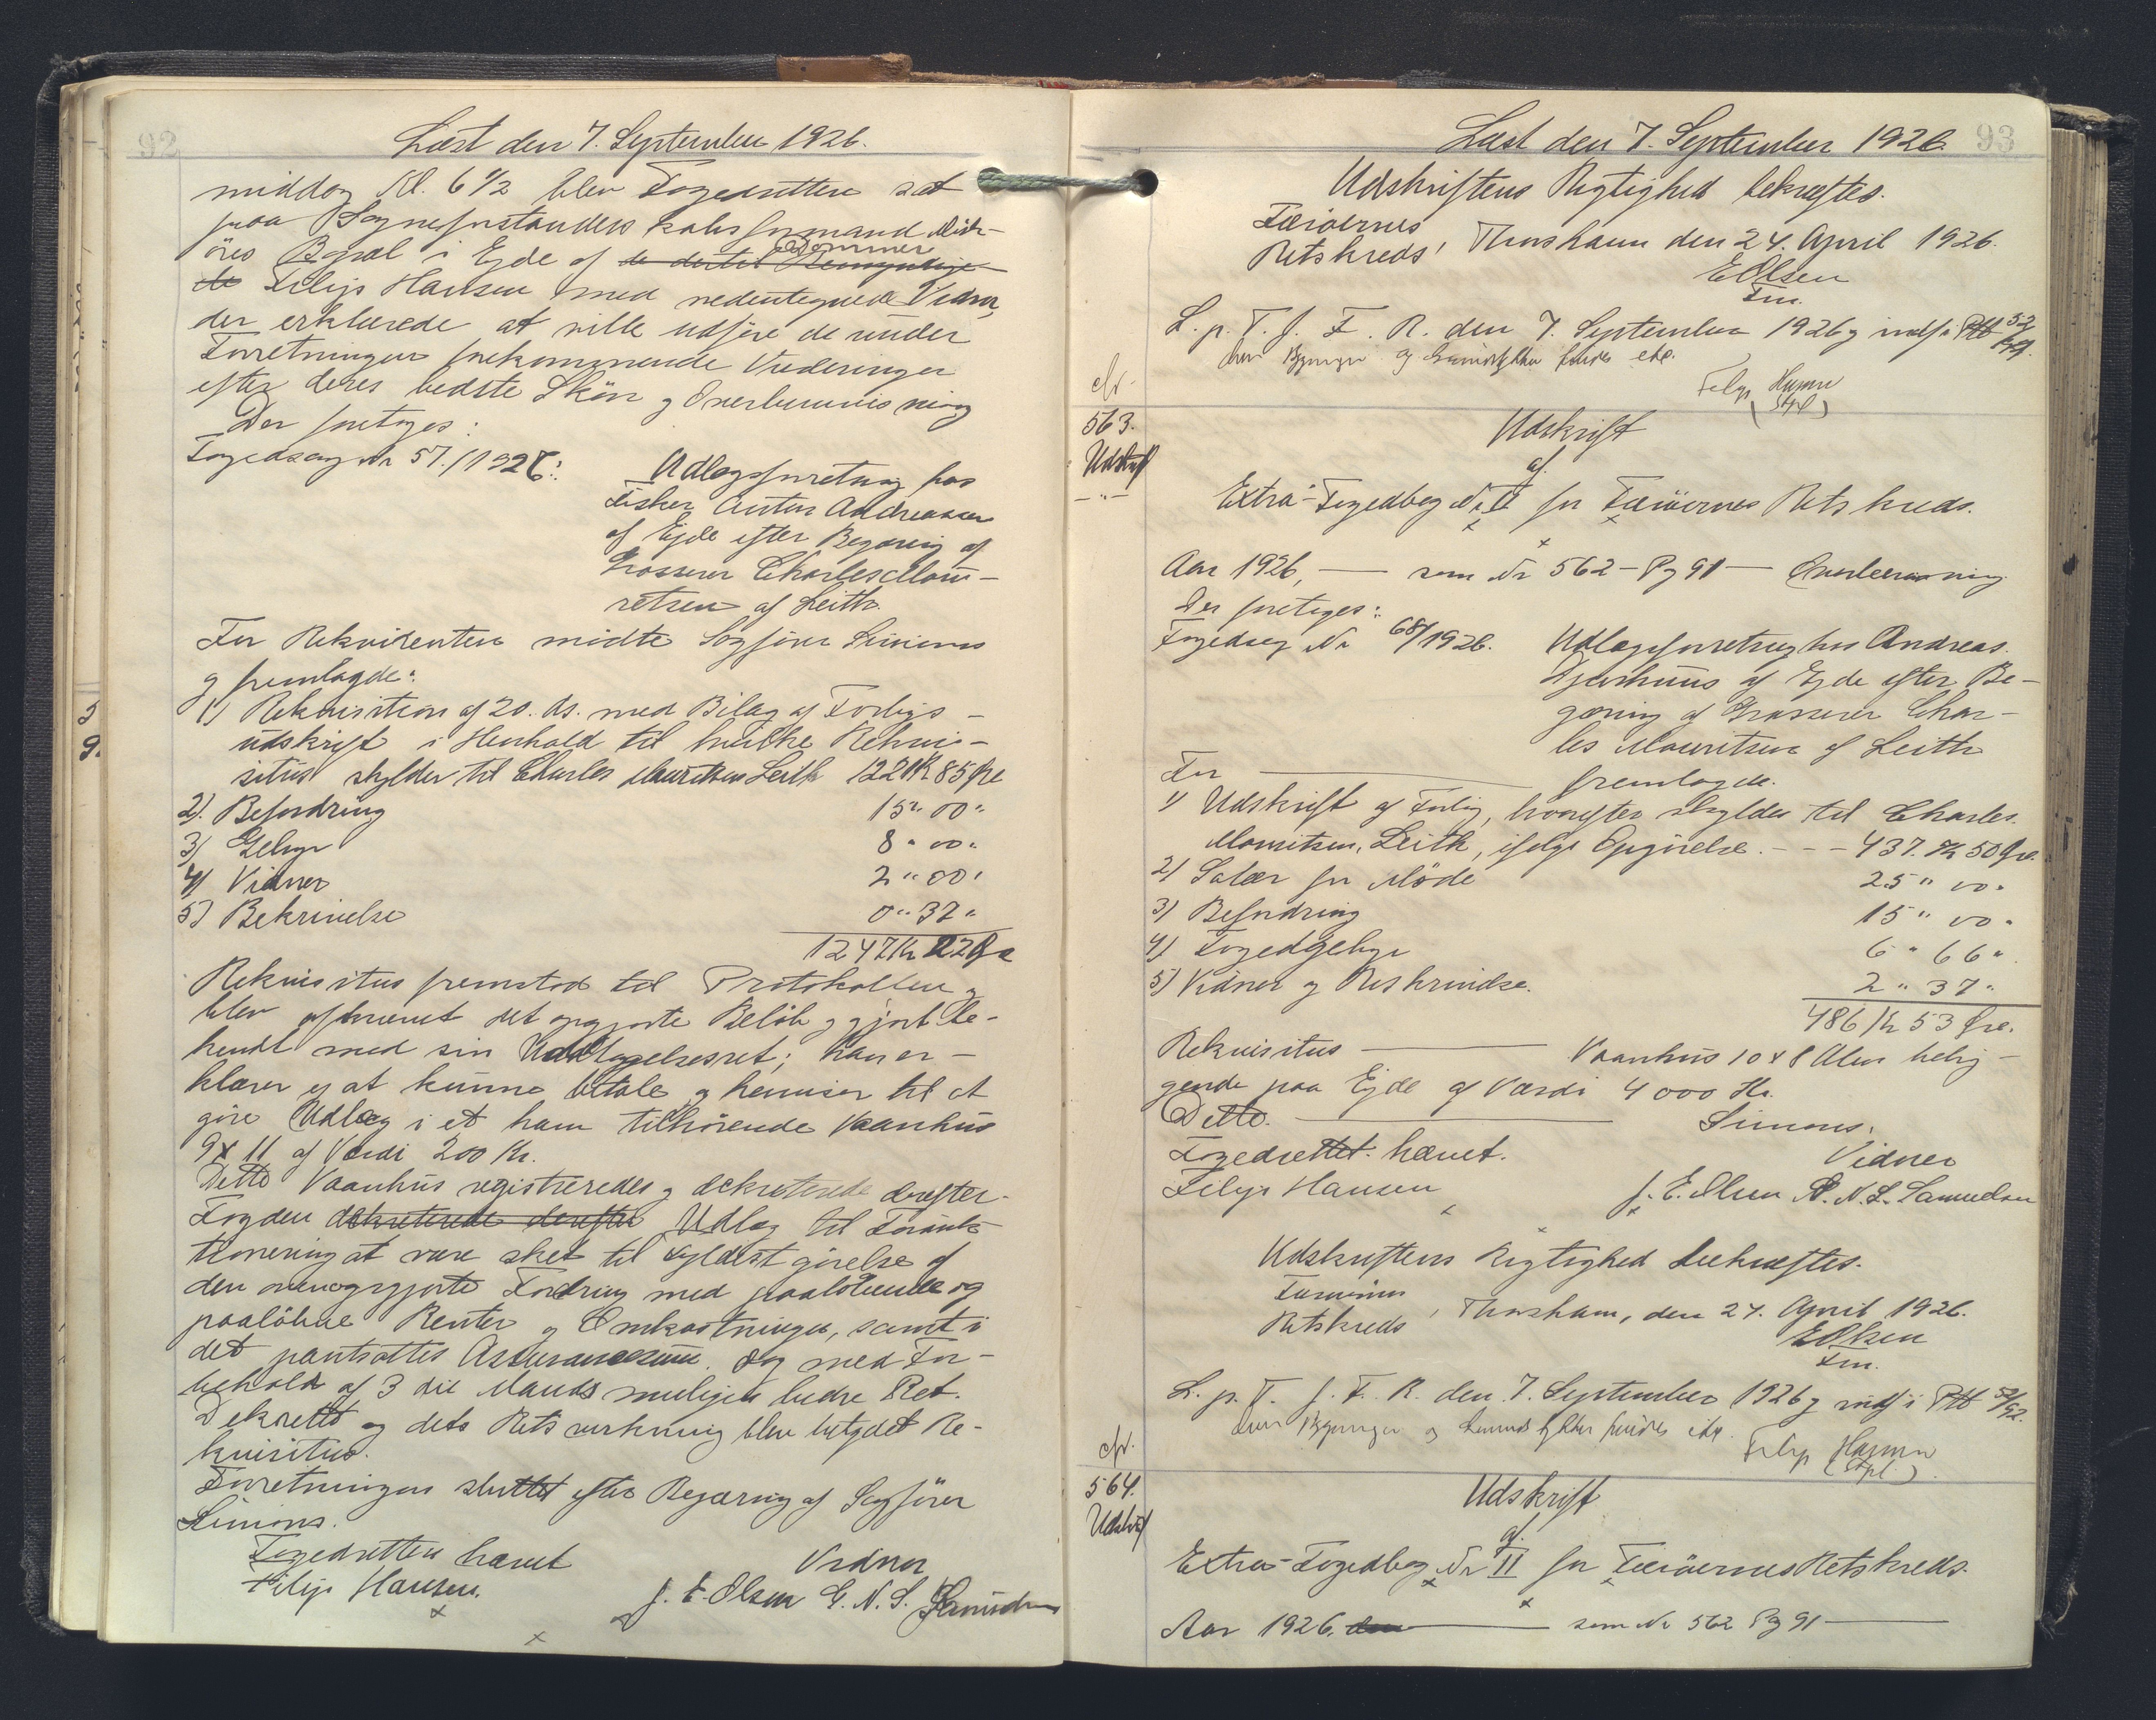 92
Læst den 7. September 1926.
middag Kl. 6 1/2 blev Fogedretten sat
paa Sogneforstanderskabsformand
Bopæl i Ejde af de dertil Dommer
Filip Hansen med nedentegnede Vidner,
der erklærede at ville udføre de under
Forretningen forekommende Vurderinger
efter deres bedste Skön og Overbevisning
Der foretoges:
Fogedsag Nr 57./1926:
Udlægsforretning hos
Fisker Anton Andreasen
af Ejde efter Begæring af
Grosserer Charles Mau-
ritzen af Leith.
For Rekvirenten mödte Sagförer Simons
og fremlagde:
1) Rekvisition af 20. ds. med Bilag af Forligs-
udskrift i Henhold til hvilke Rekvi-
situs skylder til Charles Mauritzen Leith 1221 Kr 85 Øre
2). Befordring 15 " 00 "
3) Gebyr 8 " 00 "
4) Vidner 2 " 00 "
5) Bekrivelse 0 " 37 "
1247 Kr 22 Øre
Rekvisitus fremstod til Protokollen og
blev afkrævet det opgjorte Beløb og gjort be-
kendt med sin Udtagelsesret; han er-
klærer ej at kunne betale og henviser til at
göre Udlæg i et ham tilhörende Vaanhus
9 x 11 af Værdi 200 Kr.
Dette Vaanhus registreredes og dekreterede derefter
Fogden dekreterede derefter Udlæg til Foránk-
tionering at være sket til Fyldestgörelse af
den ovenopgjorte Fordring med paalöbende og
paalöbne Renter og Omkostninger, samt i
det pantsattes Assurancesum. Dog med For-
behold af 3 die Mands muligen bedre Ret.
Dekretet og dets Retsvirkning blev betydet Re-
kvisitus.
Forretningen sluttet efter Begæring af Sagförer
Simons.
Fogedretten hævet
Vidner
Filip Hansen.
J. E. Olsen G. N. S. Samuelsen
93
Læst den 7. September 1926.
Udskriftens Rigtighed bekræftes.
Færöernes
Retskreds, Thorshavn den 24. April 1926.
EOlsen
Fm.
L. p. T. f. F. R. den 7. September 1926 og indf i Ptb 52/
Filip Hansen
cfr.
563.
Udskrift
Udskrift
af
Extra-Fogedbog Nr II for Færöernes Retskreds.
Aar 1926, — som Nr 562 - Pg 91 — Overbevisning
Der foretoges:
Fogedsag Nr 68/1926.
Udlægsforretning hos Andreas
Djurhuus af Ejde efter Be-
gæring af Grosserer Char-
les Mauritsen af Leith
For — fremlagde.
1) Udskrift af Forlig, hvorefter skyldes til Charles
Mauritsen, Leith, ifölge Opgörelse. - - - 437. Kr 50 Øre.
2) Salær for Möde 25 " 00 "
3) Befordring 15 " 00 "
4) Fogedgebyr 6 " 66 "
5) Vidner og Beskrivelse. 2 " 37 "
486 Kr 53 Øre.
Rekvisitus — Vaanhus 10 x 8 Alen belig-
gende paa Ejde af Værdi 4000 Kr.
Dette — Simons.
Fogedrettet hævet.
Vidner
Filip Hansen
J. E. Olsen G. N. S. Samuelsen
Udskriftens Rigtighed bekræftes.
Færöernes
Retskreds, Thorshavn, den 24. April 1926.
EOlsen
Fm.
L. p. T. f. F. R. den 7. September 1926 og indf i Ptb 52/
Filip Hansen
cfr.
564.
Udskrift
Udskrift
af
Extra-Fogedbog Nr II for Færöernes Retskreds.
Aar 1926. den — som Nr 562 Pg 91 —